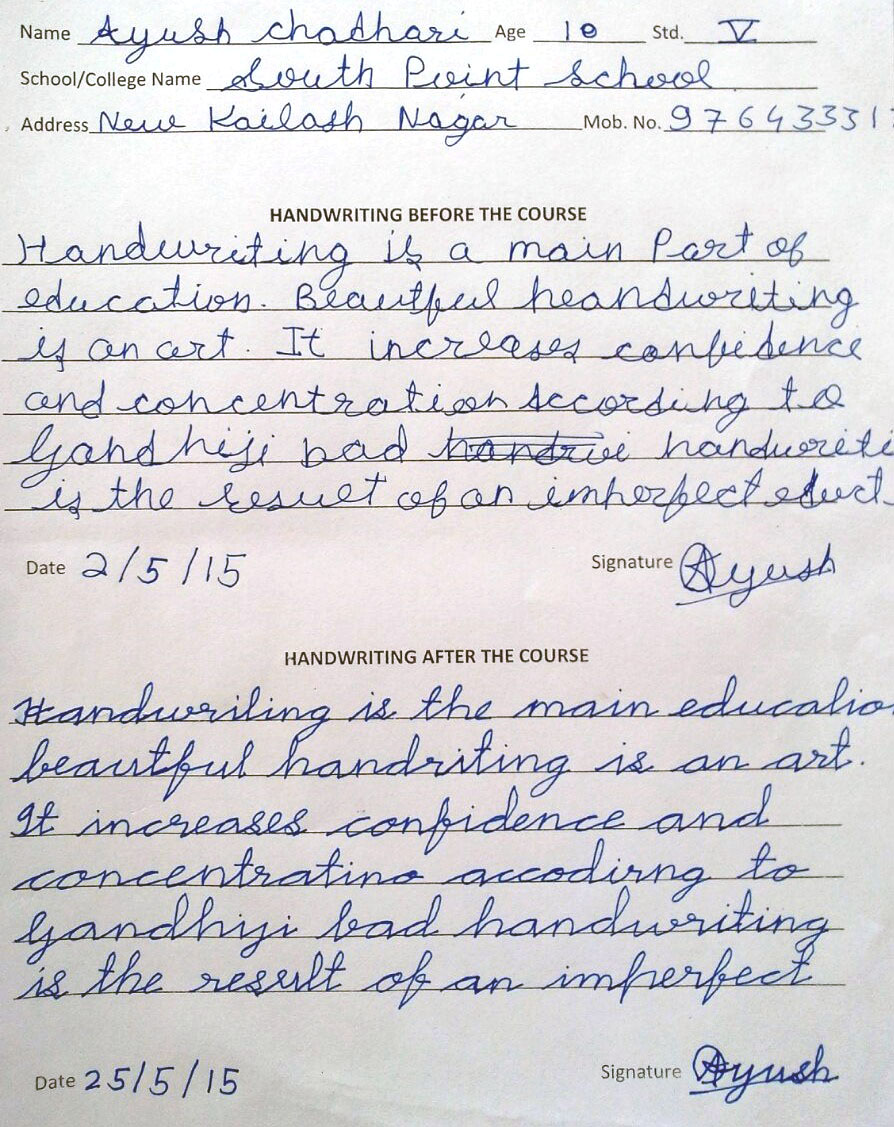 Name Ayush Chadhari Age 10 Std. V
School/College Name South Point School
Address New Kailash Nagar Mob. No. 97643331
HANDWRITING BEFORE THE COURSE
Handwriting is a main Part of
education. Beautful heandwriting
is an art. It increases confidence
and concentration According to
Gandhiji bad handwriti
is the result of an imperfect educt
Date 2/5/15 Signature Ayush
HANDWRITING AFTER THE COURSE
Handwriling is the main educalio
beautful handriting is an art.
It increases confidence and
concentratino accodirng to
Gandhiji bad handwriting
is the result of an imperfect
Date 25/5/15 Signature Ayush